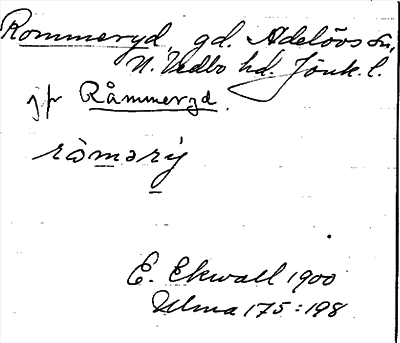 Rommeryd, gd. Adelövs sn,
N. Vedbo hd. Jönk. l.
jfr Råmmeryd.
råməry
E. Ekwall 1900
Ulma 175:198